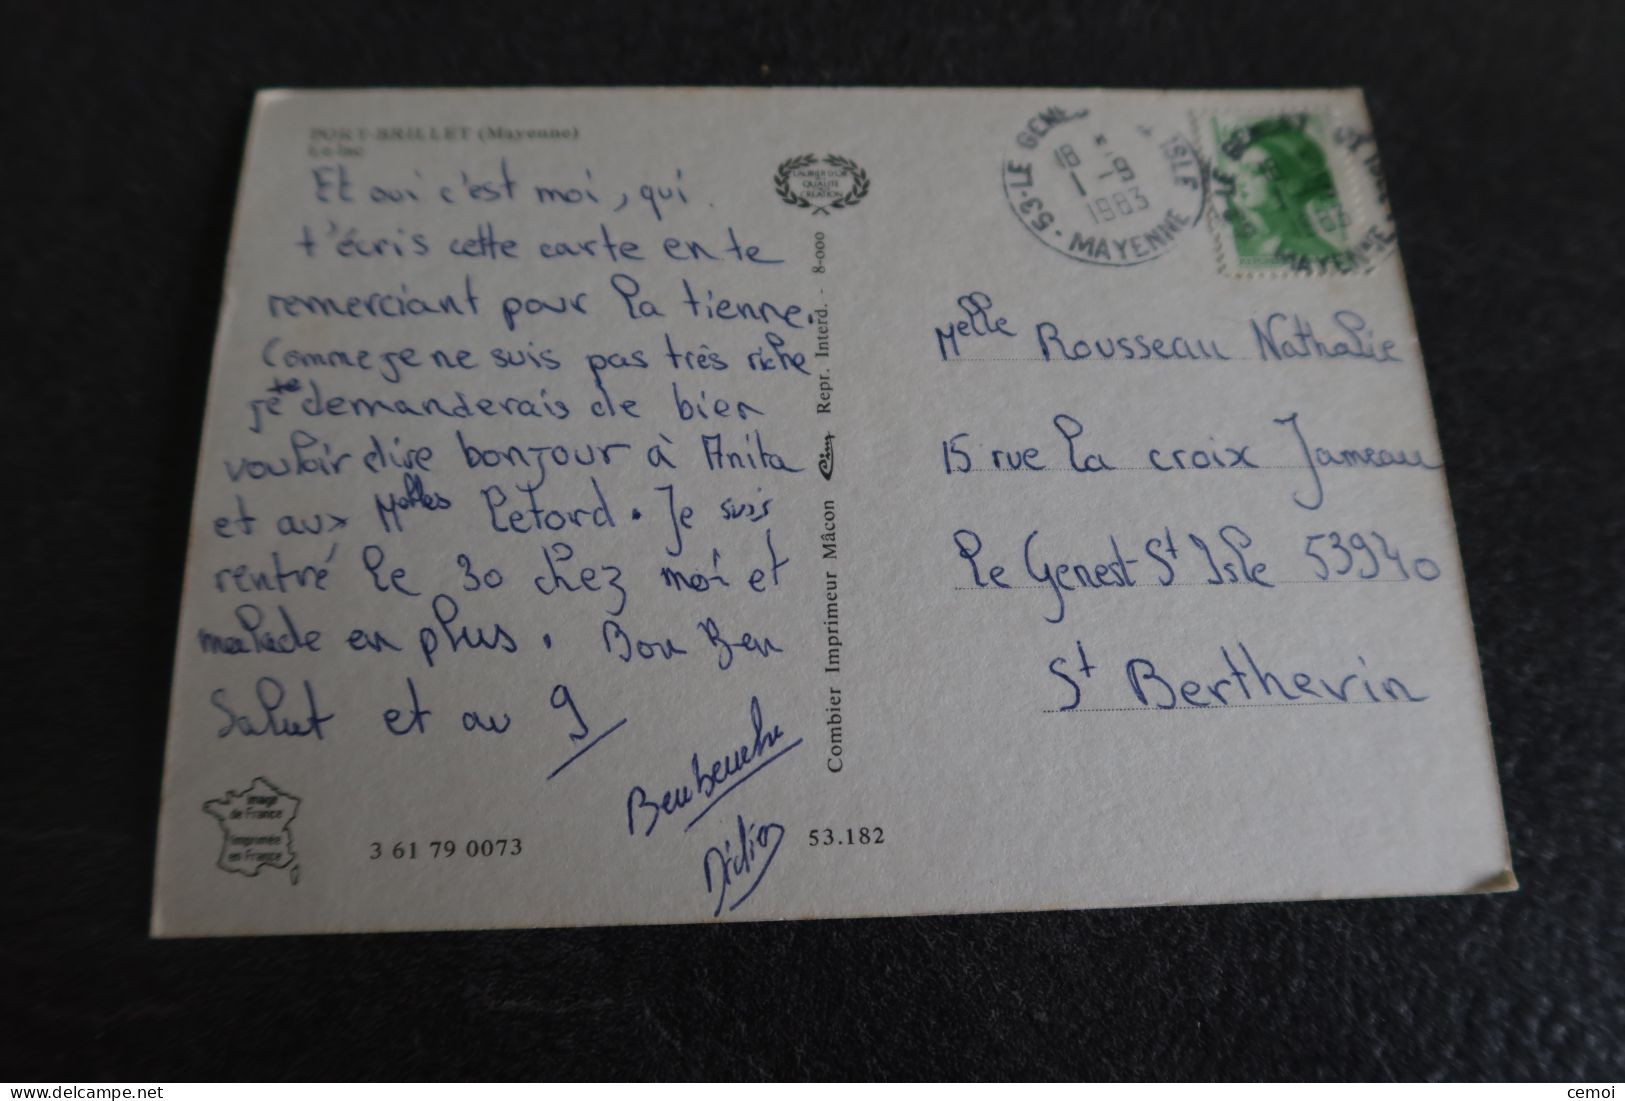 PORT-BRILLET (Mayenne)
Le lac
Et oui c'est moi, qui
t'écris cette carte en te
remerciant pour la tienne.
Comme je ne suis pas très riche
je te demanderais de bien
vouloir dire bonjour à Anita
et aux Melles Letord. Je suis
rentré le 30 chez moi et
malade en plus. Bon Ben
Salut et au 9
Didier
LAURIER D'OR
QUALITE
CREATION
Combier Imprimeur Mâcon Cim Repr. Interd. - 8-000
Image
de France
Imprimée
en France
3 61 79 0073
53.182
53-LE GENEST ISLE
18 - 9
1 - 1
1983
MAYENNE
MAYENNE
Melle Rousseau Nathalie
15 rue la croix Jameau
Le Genest St Isle 53940
St Berthevin
cemoi